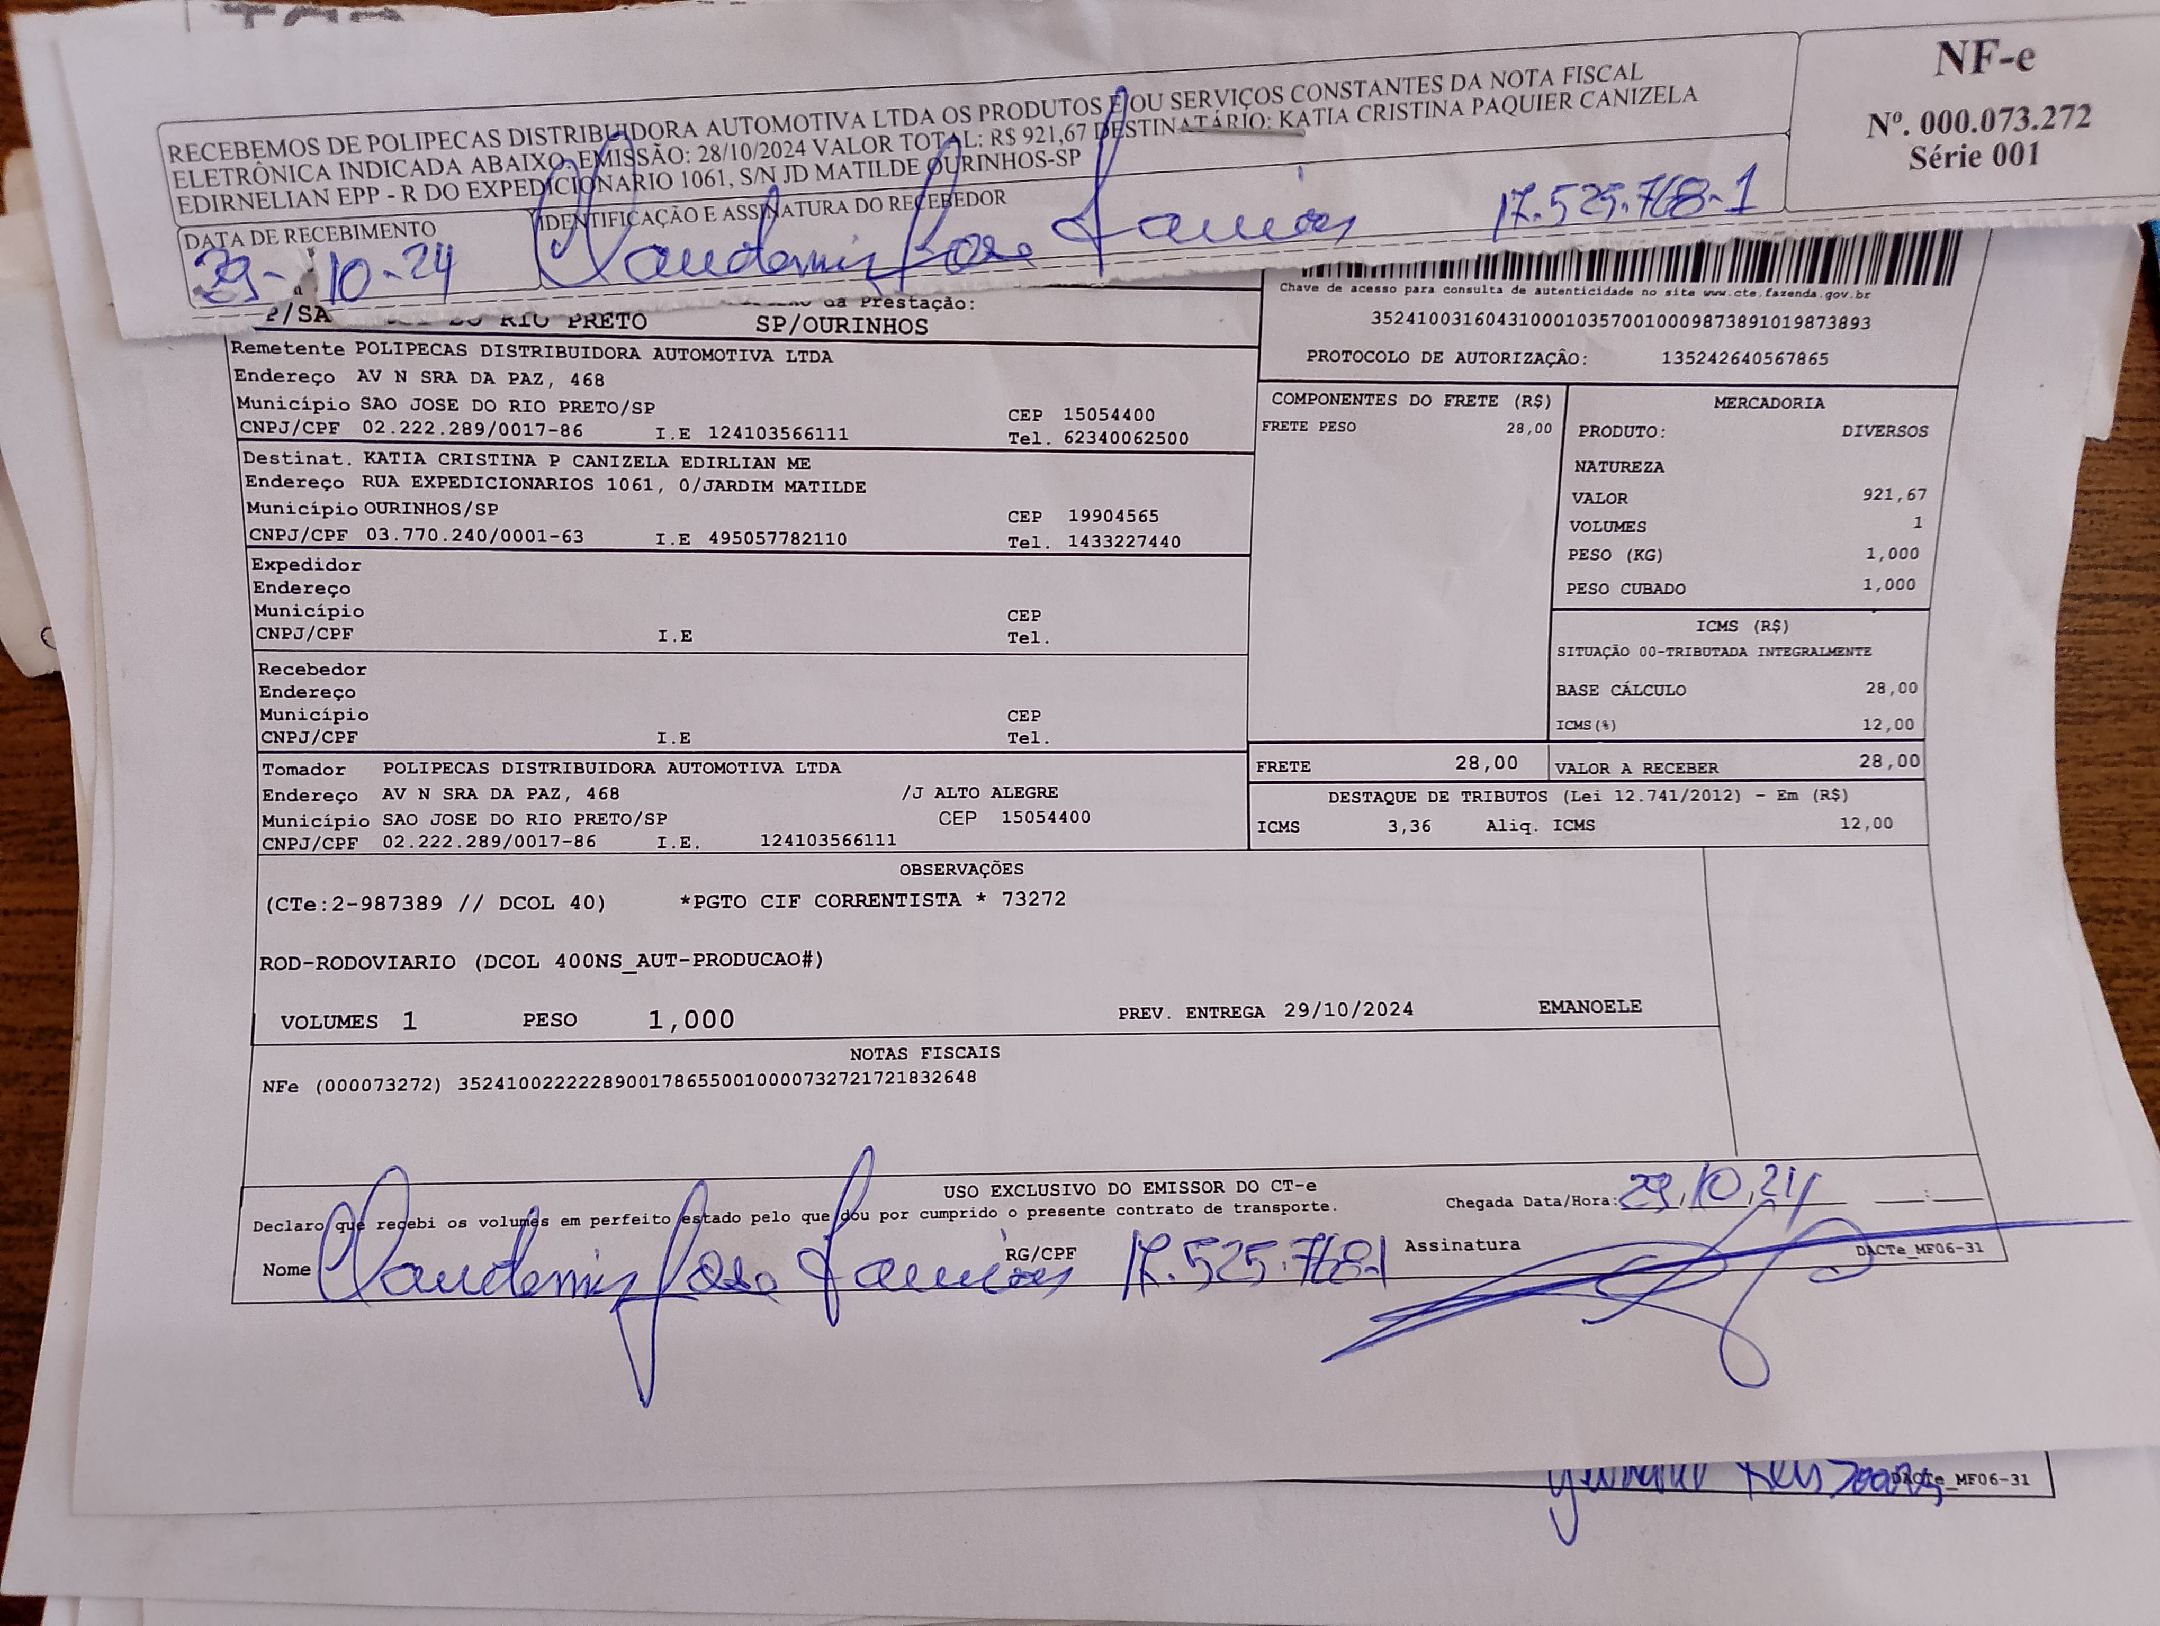 RECEBEMOS DE POLIPECAS DISTRIBUIDORA AUTOMOTIVA LTDA OS PRODUTOS E/OU SERVIÇOS CONSTANTES DA NOTA FISCAL
ELETRÔNICA INDICADA ABAIXO. EMISSÃO: 28/10/2024 VALOR TOTAL: R$ 921,67 DESTINATÁRIO: KATIA CRISTINA PAQUIER CANIZELA
EDIRNELIAN EPP - R DO EXPEDICIONARIO 1061, S/N JD MATILDE OURINHOS-SP
NF-e
Nº. 000.073.272
Série 001
DATA DE RECEBIMENTO
IDENTIFICAÇÃO E ASSINATURA DO RECEBEDOR
29-10-24
17.525.768-1
da Prestação:
P/SA
DO RIO PRETO
SP/OURINHOS
Chave de acesso para consulta de autenticidade no site www.cte.fazenda.gov.br
35241003160431000103570010009873891019873893
PROTOCOLO DE AUTORIZAÇÃO: 135242640567865
Remetente POLIPECAS DISTRIBUIDORA AUTOMOTIVA LTDA
Endereço AV N SRA DA PAZ, 468
Município SAO JOSE DO RIO PRETO/SP CEP 15054400
CNPJ/CPF 02.222.289/0017-86 I.E 124103566111 Tel. 62340062500
Destinat. KATIA CRISTINA P CANIZELA EDIRLIAN ME
Endereço RUA EXPEDICIONARIOS 1061, 0/JARDIM MATILDE
Município OURINHOS/SP CEP 19904565
CNPJ/CPF 03.770.240/0001-63 I.E 495057782110 Tel. 1433227440
Expedidor
Endereço
Município CEP
CNPJ/CPF I.E Tel.
Recebedor
Endereço
Município CEP
CNPJ/CPF I.E Tel.
Tomador POLIPECAS DISTRIBUIDORA AUTOMOTIVA LTDA
Endereço AV N SRA DA PAZ, 468 /J ALTO ALEGRE
Município SAO JOSE DO RIO PRETO/SP CEP 15054400
CNPJ/CPF 02.222.289/0017-86 I.E. 124103566111
COMPONENTES DO FRETE (R$)
FRETE PESO 28,00
MERCADORIA
PRODUTO: DIVERSOS
NATUREZA
VALOR 921,67
VOLUMES 1
PESO (KG) 1,000
PESO CUBADO 1,000
ICMS (R$)
SITUAÇÃO 00-TRIBUTADA INTEGRALMENTE
BASE CÁLCULO 28,00
ICMS(%) 12,00
FRETE 28,00 VALOR A RECEBER 28,00
DESTAQUE DE TRIBUTOS (Lei 12.741/2012) - Em (R$)
ICMS 3,36 Aliq. ICMS 12,00
OBSERVAÇÕES
(CTe:2-987389 // DCOL 40) *PGTO CIF CORRENTISTA * 73272
ROD-RODOVIARIO (DCOL 400NS_AUT-PRODUCAO#)
VOLUMES 1 PESO 1,000 PREV. ENTREGA 29/10/2024 EMANOELE
NOTAS FISCAIS
NFe (000073272) 35241002222289001786550010000732721721832648
USO EXCLUSIVO DO EMISSOR DO CT-e
Declaro que recebi os volumes em perfeito estado pelo que dou por cumprido o presente contrato de transporte.
Chegada Data/Hora: 29.10.24 __:__
Nome RG/CPF 17.525.768-1 Assinatura
DACTe_MF06-31
DACTe_MF06-31